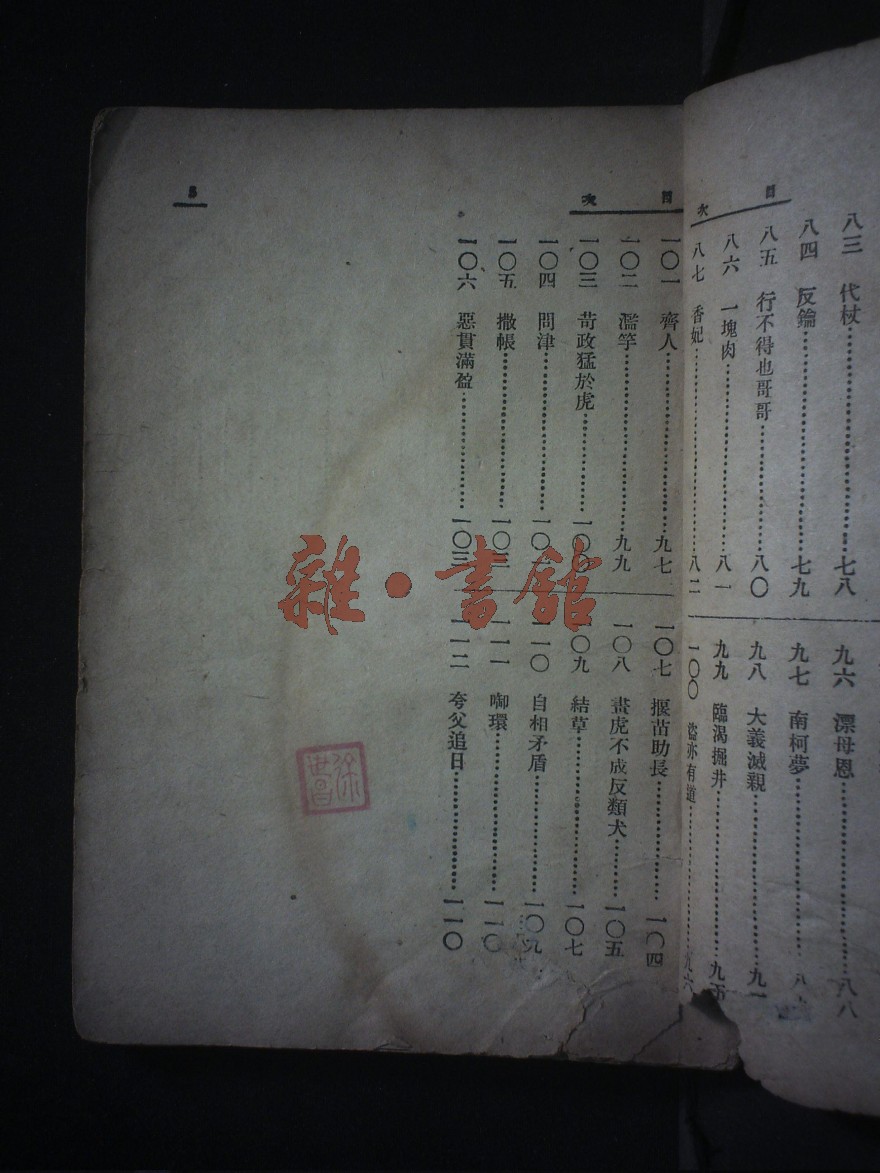 目次
八三 代杖 七八
八四 反鑰 七九
八五 行不得也哥哥 八〇
八六 一塊肉 八一
八七 香妃 八二
九六 漂母恩 八八
九七 南柯夢
九八 大義滅親 九一
九九 臨渴掘井
一〇〇 盜亦有道 九六
目次
一〇一 齊人 九七
一〇二 濫竽 九九
一〇三 苛政猛於虎
一〇四 問津
一〇五 撒帳
一〇六 惡貫滿盈 一〇三
一〇七 揠苗助長 一〇四
一〇八 畫虎不成反類犬 一〇五
一〇九 結草 一〇七
一一〇 自相矛盾 一〇九
一一一 啣環 一一〇
一一二 夸父追日 一一〇
雜·書館